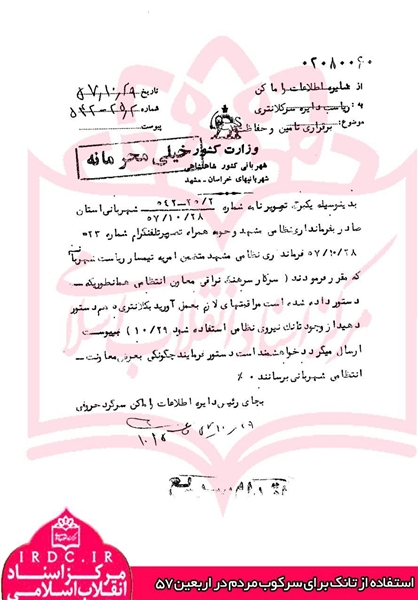 ۰۲۰۸۰۰۶۰
از دایره اطلاعات اماکن
به: ریاست دایره سرکلانتری
موضوع: برقراری تامین و حفاظت
تاریخ ۵۷/۱۰/۲۹
شماره ۵۴۲-۲۵/۲
پیوست
وزارت کشور
خیلی محرمانه
شهربانی کشور شاهنشاهی
شهربانیهای خراسان - مشهد
بدینوسیله یکبرگ تصویر نامه شماره ۵۴۲-۲۵/۲ ۵۷/۱۰/۲۸ شهربانی استان
صادره بفرمانداری نظامی مشهد و حومه همراه تصویر تلفنگرام شماره ۲۳-
۵۷/۱۰/۲۸ فرمانداری نظامی مشهد متضمن اوامر تیمسار ریاست شهربانی
که مقرر فرمودند ( سرکار سرهنگ عراقی معاون انتظامی همانطوریکه -
دستور داده شده است مراقبتهای لازم بعمل آورید بکلانتریها هم دستور
دهید از وجود تانک نیروی نظامی استفاده شود ۱۰/۲۹ ) بپیوست
ارسال میگردد خواهشمند است دستور فرمایند چگونگی بعرض معاونت -
انتظامی شهربانی برسانند ٪
بجای رئیس دایره اطلاعات اماکن سرگرد
۵۷/۱۰/۲۹
IRDC.IR
مرکز اسناد
انقلاب اسلامی
استفاده از تانک برای سرکوب مردم در اربعین ۵۷